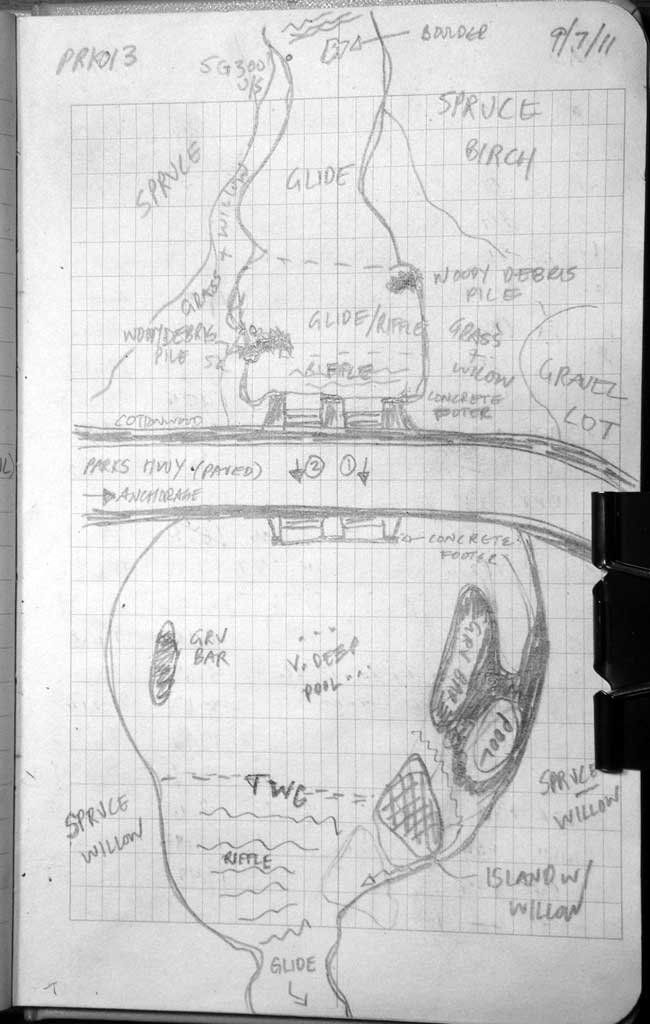 PRK013
9/7/11
BOLDER
SG300'
U/S
SPRUCE
BIRCH
SPRUCE
GLIDE
GRASS + WILLOW
WOODY DEBRIS
PILE
GLIDE/RIFFLE
GRASS
+
WILLOW
WOODY DEBRIS
PILE
RIFFLE
GRAVEL
LOT
CONCRETE
FOOTER
COTTONWOOD
PARKS HWY (PAVED)
2 1
ANCHORAGE
CONCRETE
FOOTER
GRV
BAR
V. DEEP
POOL
GRV BAR
POOL
TWG
SPRUCE
WILLOW
SPRUCE
WILLOW
RIFFLE
ISLAND W/
WILLOW
GLIDE